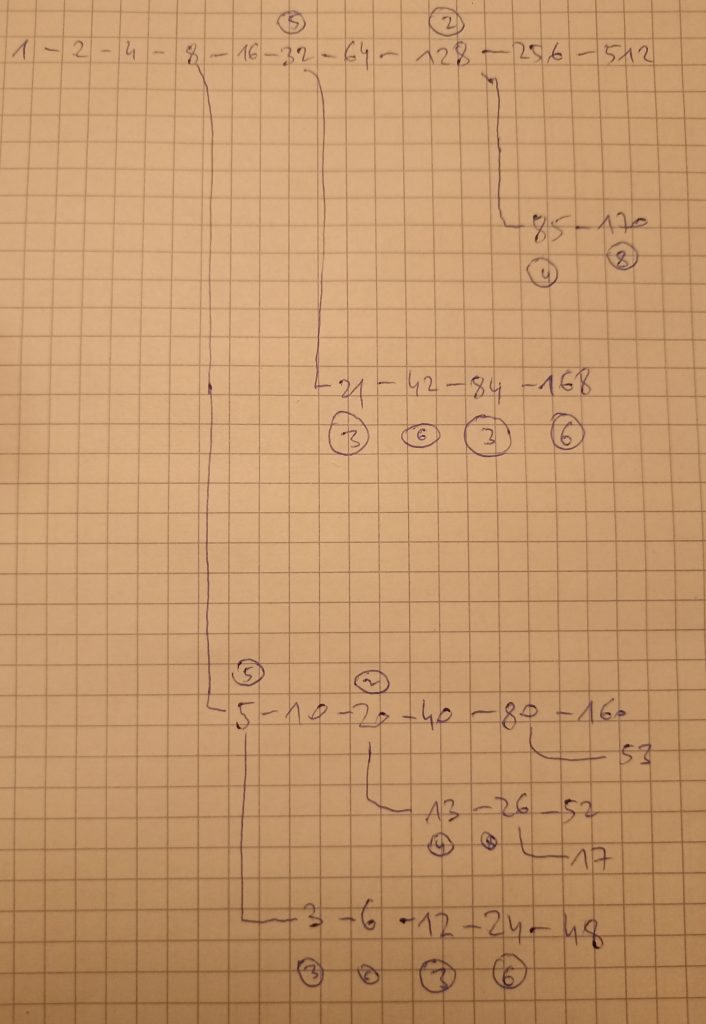 5 2
1 - 2 - 4 - 8 - 16 - 32 - 64 - 128 - 256 - 512
85 - 170
4 8
21 - 42 - 84 - 168
3 6 3 6
5 2
5 - 10 - 20 - 40 - 80 - 160
53
13 - 26 - 52
4
17
3 - 6 - 12 - 24 - 48
3 6 3 6